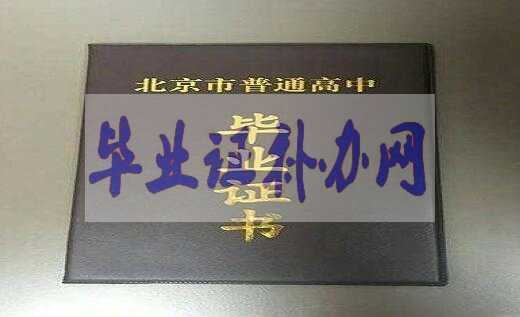 北京市普通高中
毕业证书
毕业证补办网